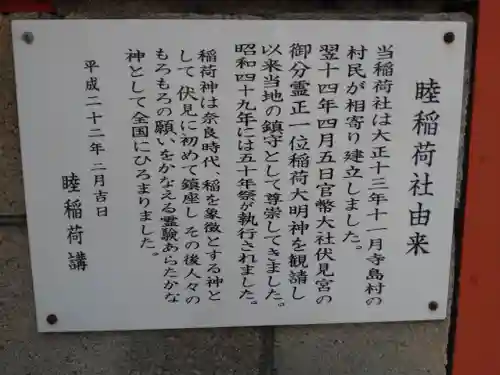 睦稲荷社由来
当稲荷社は大正十三年十一月寺島村の
村民が相寄り建立しました。
翌十四年四月五日官幣大社伏見宮の
御分霊正一位稲荷大明神を観請し
以来当地の鎮守として尊崇してきました。
昭和四十九年には五十年祭が執行されました。
稲荷神は奈良時代、稲を象徴とする神と
して 伏見に初めて鎮座し その後人々の
もろもろの願いをかなえる霊験あらたかな
神として全国にひろまりました。
平成二十二年二月吉日
睦稲荷講